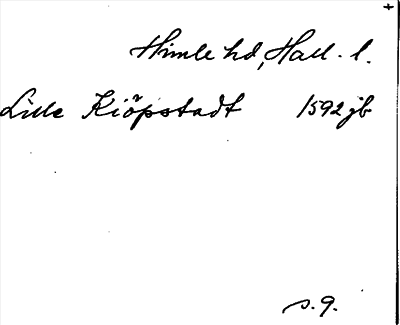 Himle hd, Hall. l.
Lille Kiöpstadt 1592 jb
s. 9.